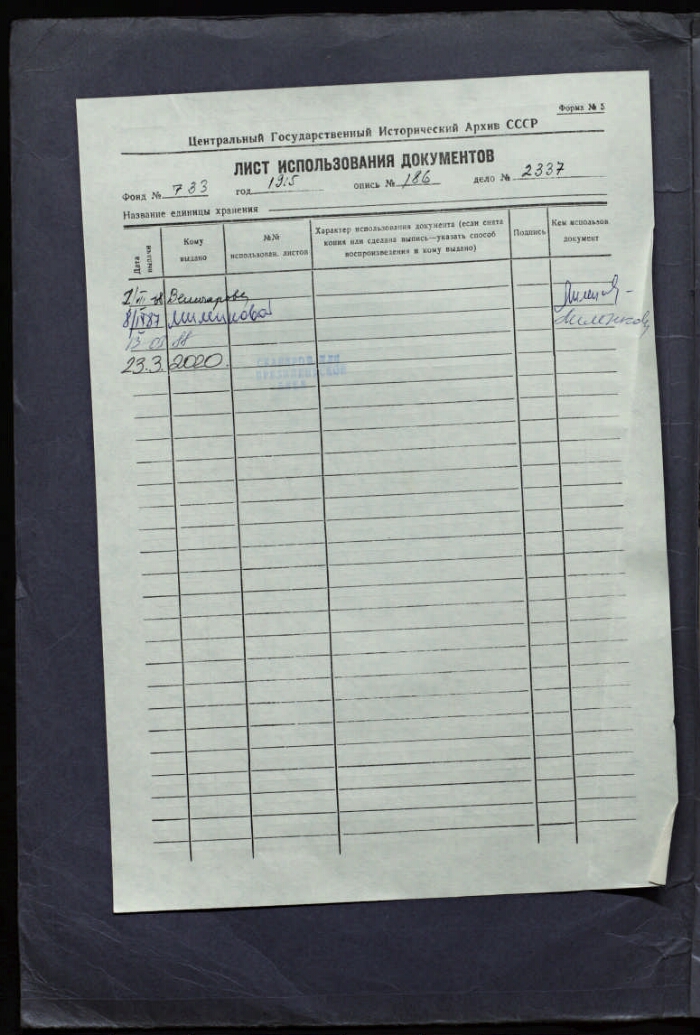 Форма № 5
Центральный Государственный Исторический Архив СССР
ЛИСТ ИСПОЛЬЗОВАНИЯ ДОКУМЕНТОВ
Фонд № 733 год 1915 опись № 186 дело № 2337
Название единицы хранения
Дата выдачи
Кому выдано
№№ использован. листов
Характер использования документа (если снята копия или сделана выпись—указать способ воспроизведения и кому выдано)
Подпись
Кем использов. документ
8/IV 87 Миленкова
13 05 88 Миленкова
23.3.2020.